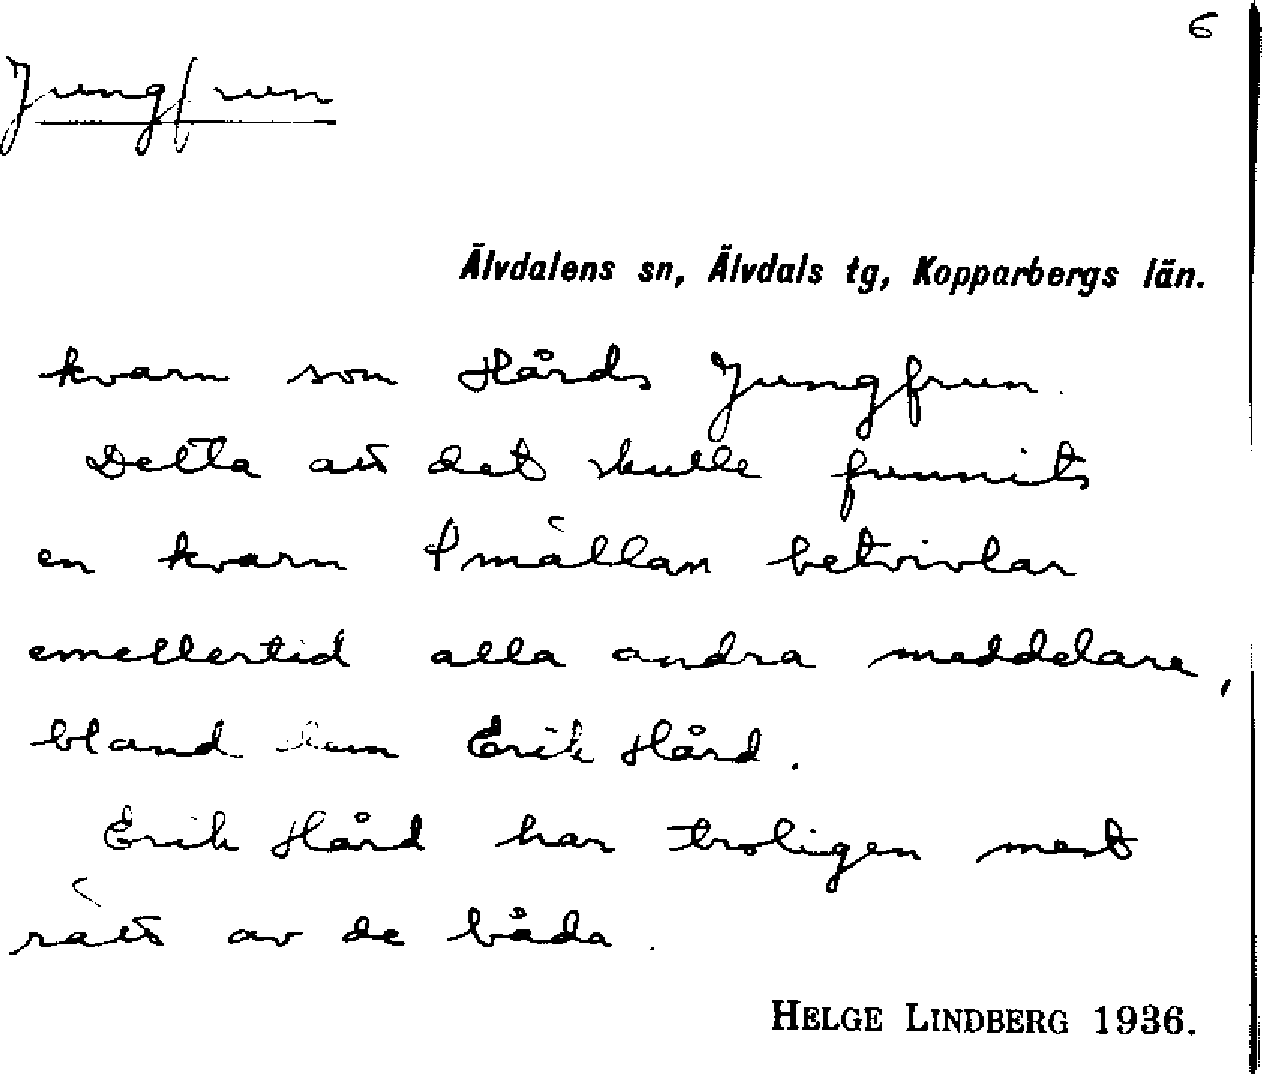 6
Jungfrun
Älvdalens sn, Älvdals tg, Kopparbergs län.
kvarn som Hårds Jungfrun.
Detta att det skulle funnits
en kvarn Smällan betvivlar
emellertid alla andra meddelare,
bland dem Erik Hård.
Erik Hård har troligen mest
rätt av de båda.
HELGE LINDBERG 1936.